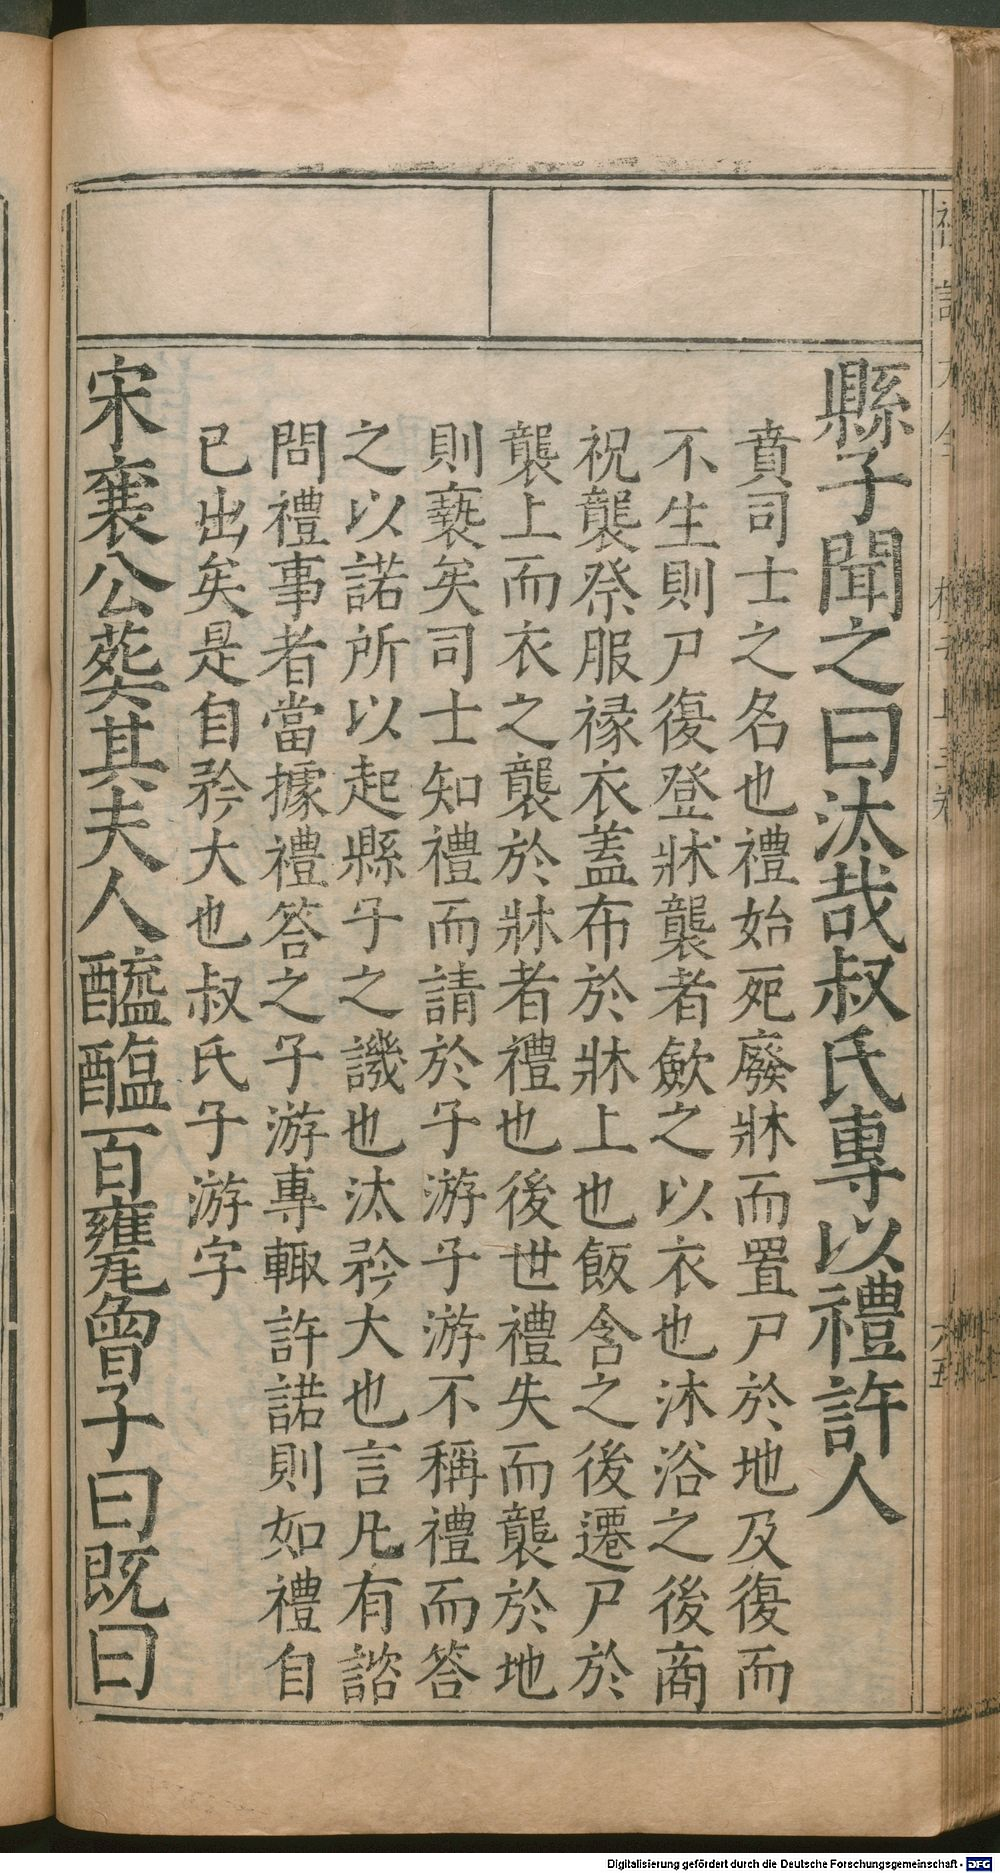 縣子聞之曰汰哉叔氏專以禮許人
賁司士之名也禮始死廢牀而置尸於地及復而
不生則尸復登牀襲者歛之以衣也沐浴之後商
祝襲祭服褖衣蓋布於牀上也飯含之後遷尸於
襲上而衣之襲於牀者禮也後世禮失而襲於地
則褻矣司士知禮而請於子游子游不稱禮而答
之以諾所以起縣子之譏也汰矜大也言凡有諮
問禮事者當據禮答之子游專輒許諾則如禮自
已出矣是自矜大也叔氏子游字
宋襄公葬其夫人醯醢百罋曾子曰既曰
Digitalisierung gefördert durch die Deutsche Forschungsgemeinschaft - DFG